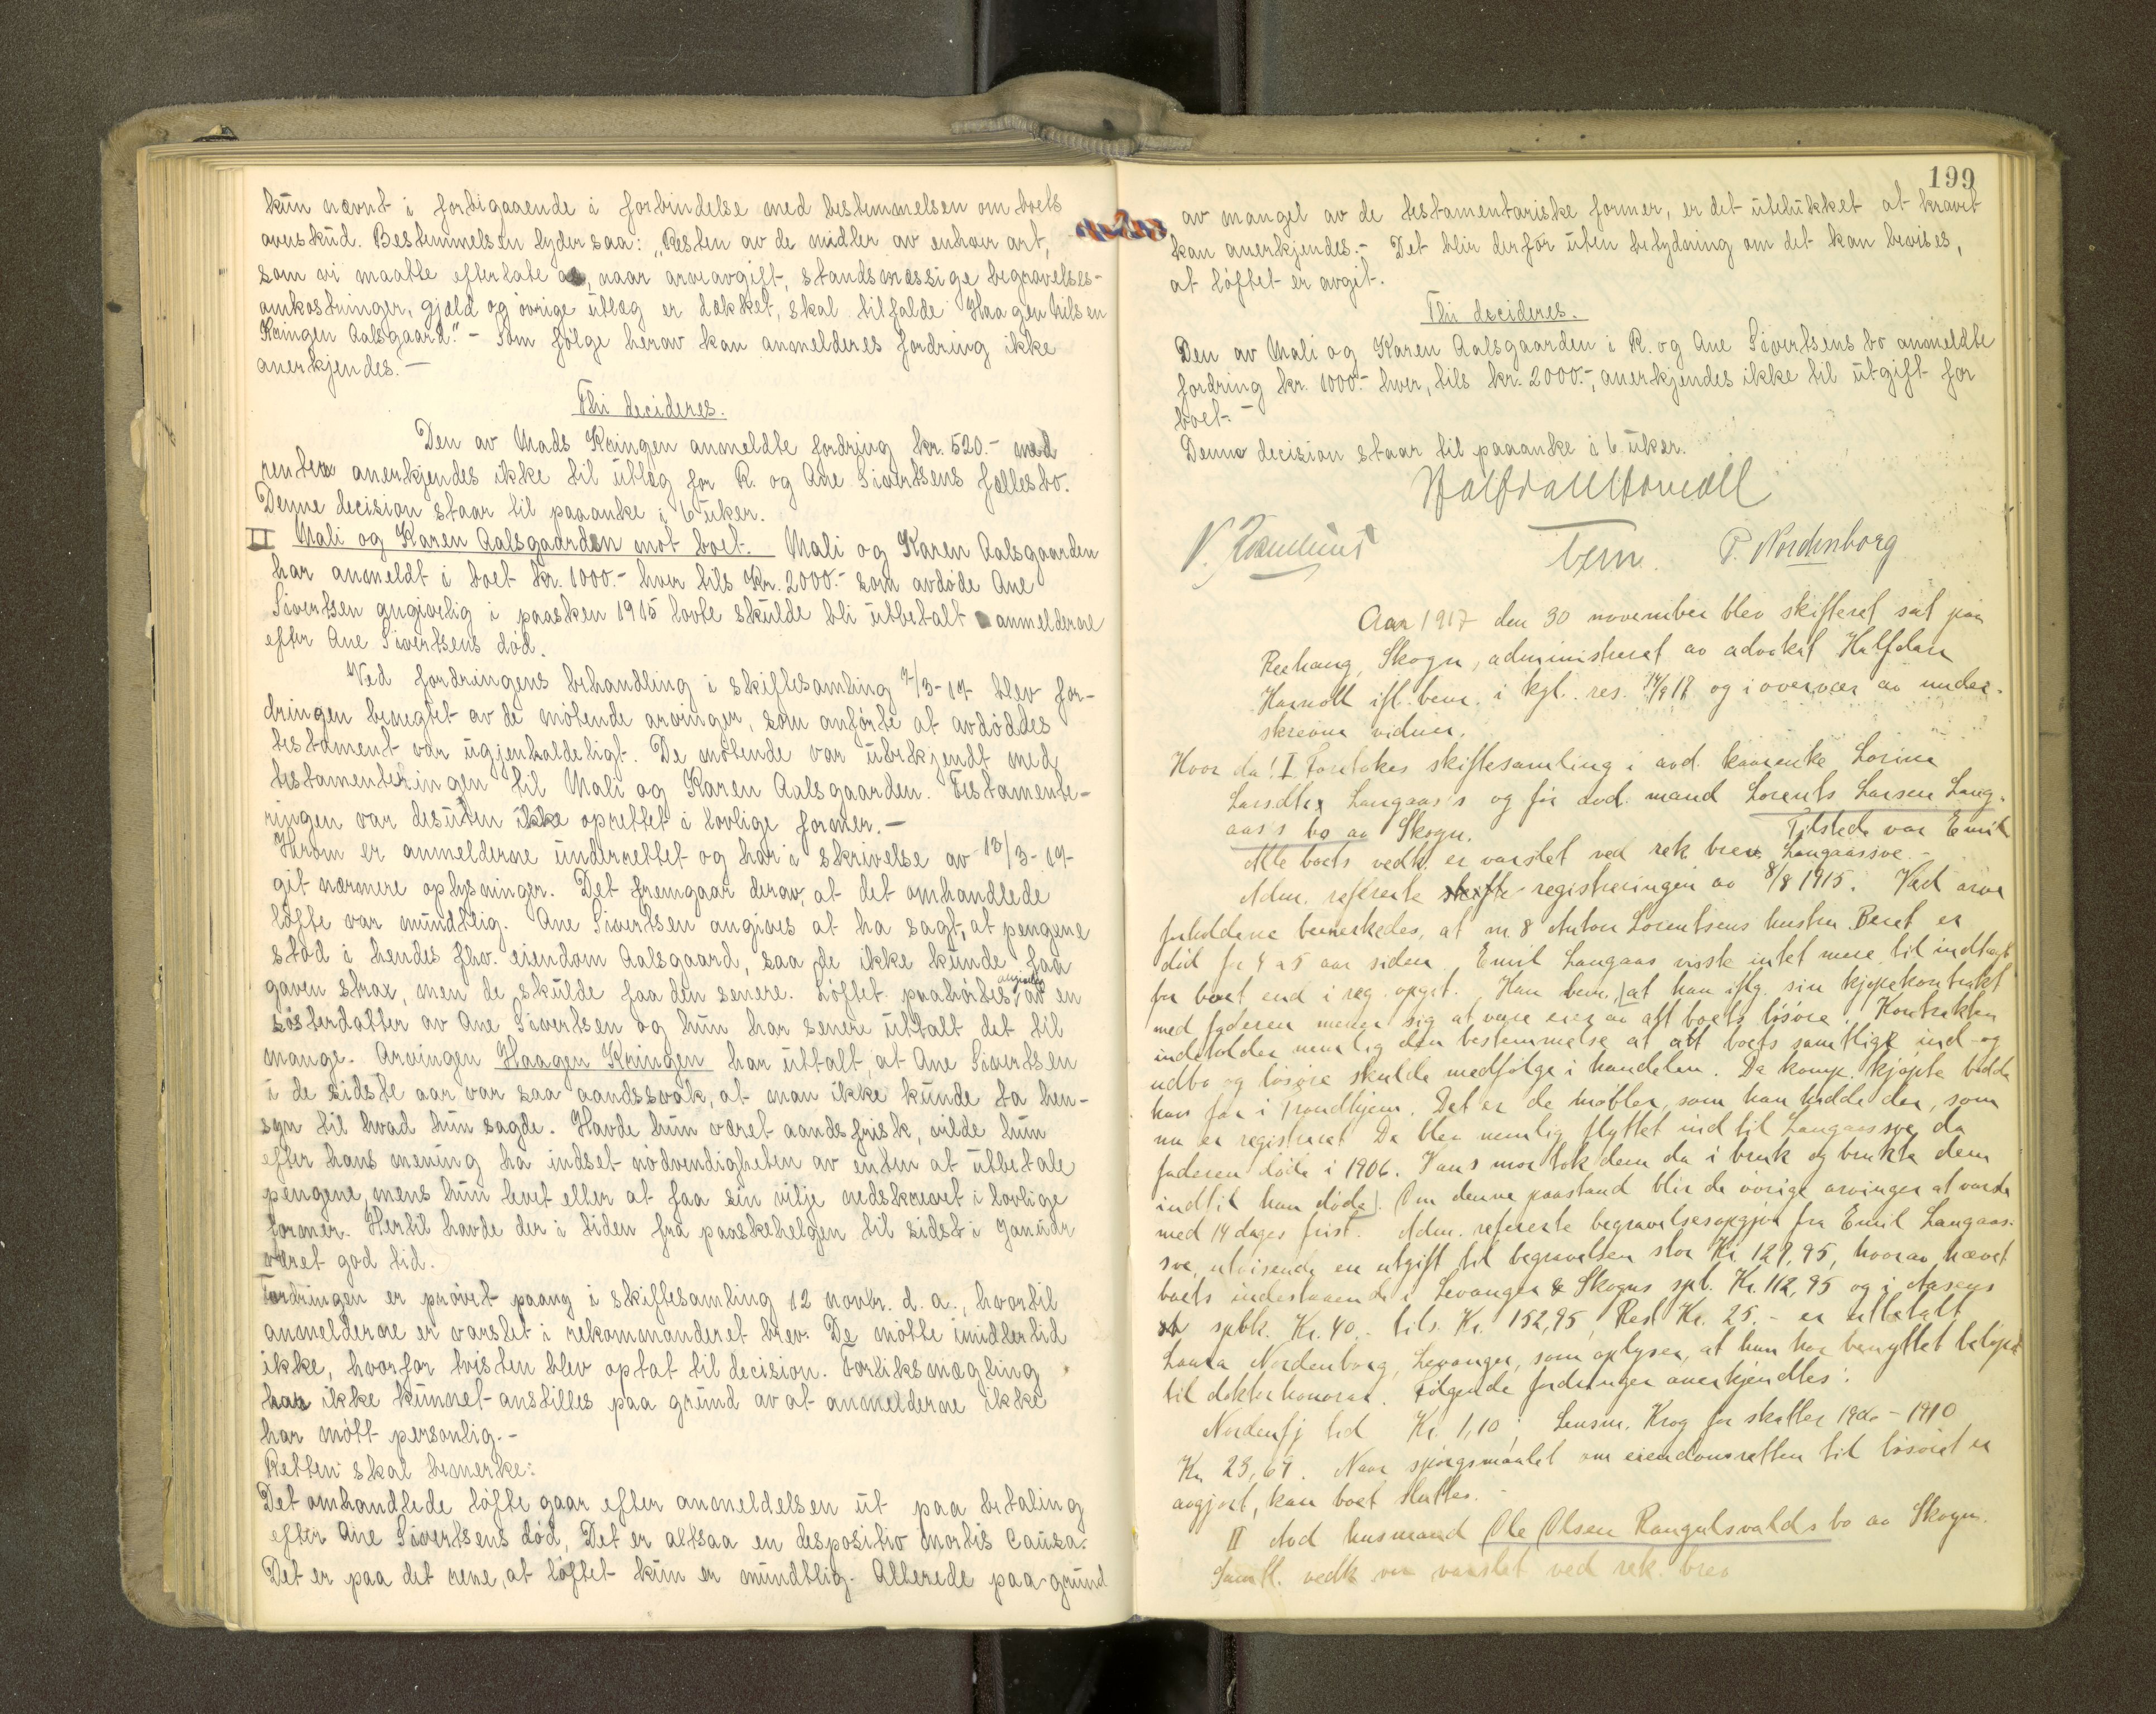 kun nævnt i forbigaaende i forbindelse med bestemmelsen om boets
overskud. Bestemmelsen lyder saa: "Resten av de midler av enhver art,
som vi maatte efterlate os, naar arveavgift, standsmæssige begravelses-
omkostninger, gjæld og øvrige utlæg er dækket, skal tilfalde Haagen Nilsen
Kringen Aalsgaard." - Som følge herav kan anmelderes fordring ikke
anerkjendes. -
Thi decideres.
Den av Mads Kringen anmeldte fordring kr. 520.- med
renter anerkjendes ikke til utlæg for R. og Ane Sivertsens fællesbo.
Denne decision staar til paaanke i 6 uker.
II Mali og Karen Aalsgaarden mot boet. Mali og Karen Aalsgaarden
har anmeldt i boet kr. 1000.- hver tils Kr. 2000.- som avdøde Ane
Sivertsen angivelig i paasken 1915 lovte skulde bli utbetalt anmelderne
efter Ane Sivertsens død.
Ved fordringens behandling i skiftesamling 7/3-17 blev for-
dringen benegtet av de møtende arvinger, som anførte at avdøddes
testament var ugjenkaldeligt. De møtende var ubekjendt med
testamenteringen til Mali og Karen Aalsgaarden. Testamente-
ringen var desuten ikke oprettet i lovlige former. -
Herom er anmelderne underrettet og har i skrivelse av 13/3-17
git nærmere oplysninger. Det fremgaar derav, at det omhandlede
løfte var mundtlig. Ane Sivertsen angives at ha sagt, at pengene
stod i hendes fhv. eiendom Aalsgaard, saa de ikke kunde faa
gaven strax, men de skulde faa den senere. Løftet paahørtes angivelig av en
søsterdatter av Ane Sivertsen og hun har senere uttalt det til
mange. Arvingen Haagen Kringen har uttalt, at Ane Sivertsen
i de sidste aar var saa aandssvak, at man ikke kunde ta hen-
syn til hvad hun sagde. Havde hun været aandsfrisk, vilde hun
efter hans mening ha indset nødvendigheten av enten at utbetale
pengene, mens hun levet eller at faa sin vilje nedskrevet i lovlige
former. Hertil havde der i tiden fra paaskehelgen til sidst i Januar
været god tid.
Fordringen er prøvet paany i skiftesamling 12 novbr. d. a., hvortil
anmelderne er varslet i rekommanderet brev. De møtte imidlertid
ikke, hvorfor tvisten blev optat til decision. Forliksmægling
har ikke kunnet anstilles paa grund av at anmelderne ikke
har møtt personlig. -
Retten skal bemerke:
Det omhandlede løfte gaar efter anmeldelsen ut paa betaling
efter Ane Sivertsens død, Det er altsaa en despositiv mortis causa.
Det er paa det rene, at løftet kun er mundtlig. Allerede paa grund
199
av mangel av de testamentariske former, er det utelukket at kravet
kan anerkjendes. - Det blir derfor uten betydning om det kan bevises,
at løftet er avgit.
Thi decideres.
Den av Mali og Karen Aalsgaarden i R. og Ane Sivertsens bo anmeldte
fordring kr. 1000.- hver, tils kr. 2000.-, anerkjendes ikke til utgift for
boet. -
Denne decision staar til paaanke i 6 uker.
P. Nordenborg
Aar 1917 den 30 november blev skifteret sat paa
Reehaug, Skogn, administreret av advokat Halfdan
ifl. bem. i kgl. res. og i overvær av under-
skrevne vidner.
Hvor da: I Foretokes skiftesamling i avd. kaarenke Lorine
Larsdtr. Langaas's og før avd. mand Lorents Larsen Lang-
aas's bo av Skogn. Tilstede var Emil
Alle boets vedk. er varslet ved rek brev. Langaassve. -
Adm. refererte skifte registreringen av 8/8 1915. Ved arve
forholdene bemerkedes, at nr. 8 Anton Lorentsens hustru Beret er
død for 4 a 5 aar siden. Emil Langaas visste intet mere til indtægt
for boet end i reg. opgit. Han bem., at han iflg. sin kjøpekontrakt
med faderen mener sig at være eier av alt boets løsøre. Kontrakten
indeholder nemlig den bestemmelse at alt boets samtlige ind- og
udbo og løsøre skulde medfølge i handelen. Da komp. kjøpte bodde
hans far i Trondhjem. Det er de møbler, som han hadde der, som
nu er registreret. De blev nemlig flyttet ind til Langaassve, da
faderen døde i 1906. Hans mor tok dem da i bruk og brukte dem
indtil hun døde. Om denne paastand blir de øvrige arvinger at varsle
med 14 dages frist. Adm. refererte begravelsesopgjør fra Emil Langaas-
sve, utvisende en utgift til begravelsen stor Kr. 127,95, hvorav hævet
boets indestaaende i Levanger & Skogns spb. Kr. 112,95 og i Aasens
spbk. Kr. 40.- tils. Kr. 152,95 Rest Kr. 25.- er utbetalt
Laura Nordenborg, Levanger, som oplyser, at hun har benyttet beløpet
til doktorhonorar. Følgende fordringer anerkjendtes:
Nordenfj. Kr. 1,10; Lensm. Krog for skatter - 1910
Kr. 23,67. Naar spørgsmaalet om eiendomsretten til løsøret er
avgjort, kan boet sluttes. -
II Avd husmand Ole Olsen Rangulsvalds bo av Skogn.
Samtl. vedk var varslet ved rek. brev